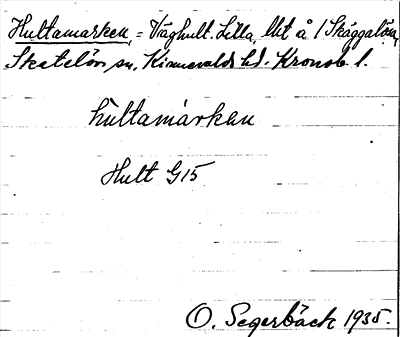 Hultamarken, = Våghult. Lilla, Ut å 1 Skäggalösa,
Skatelöv sn, Kinnevalds hd. Kronob l.
hultamarken
Hult G15
O. Segerbäck 1935.